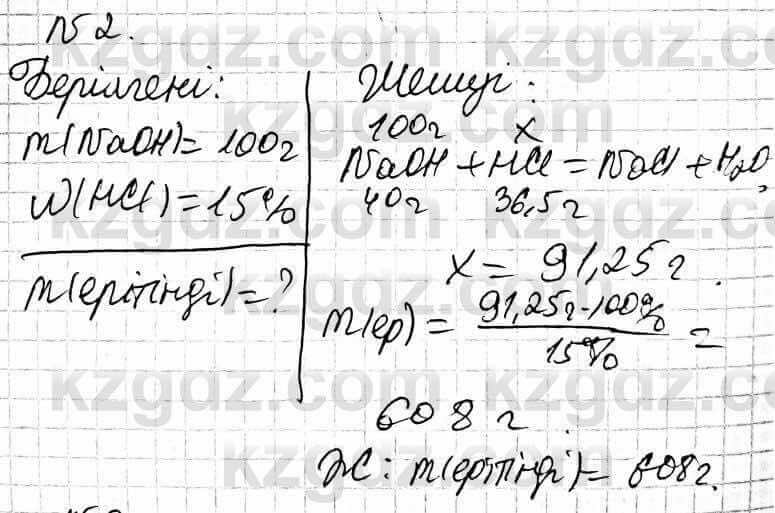 №2.
Берілгені:
m(NaOH)=100г
W(HCl)=15%
m(ерітінді)=?
Шешуі:
100г x
NaOH + HCl = NaCl + H₂O
40г 36,5г
x = 91,25г.
m(ер) = 91,25г·100% / 15% =
608г.
Ж: m(ерітінді)= 608г.
kzgdz.com